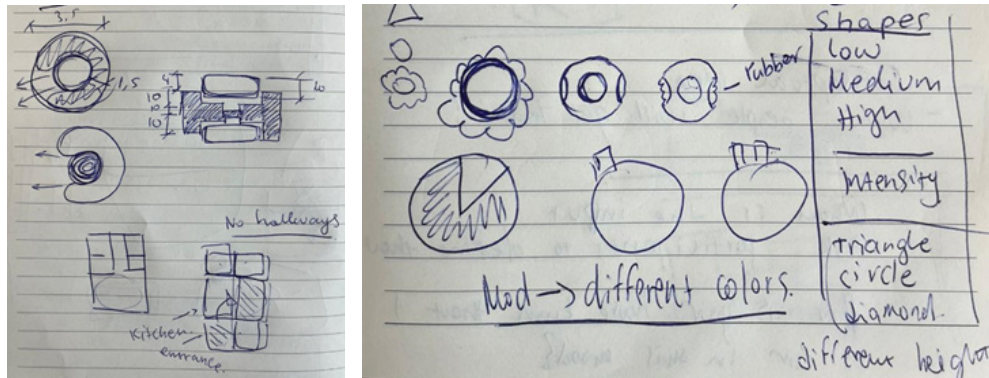 3,5
1,5
4
10
5
10
6
No hallways
Kitchen
entrance
rubber
Mod → different colors.
Shapes
Low
Medium
High
intensity
triangle
circle
diamond.
different height